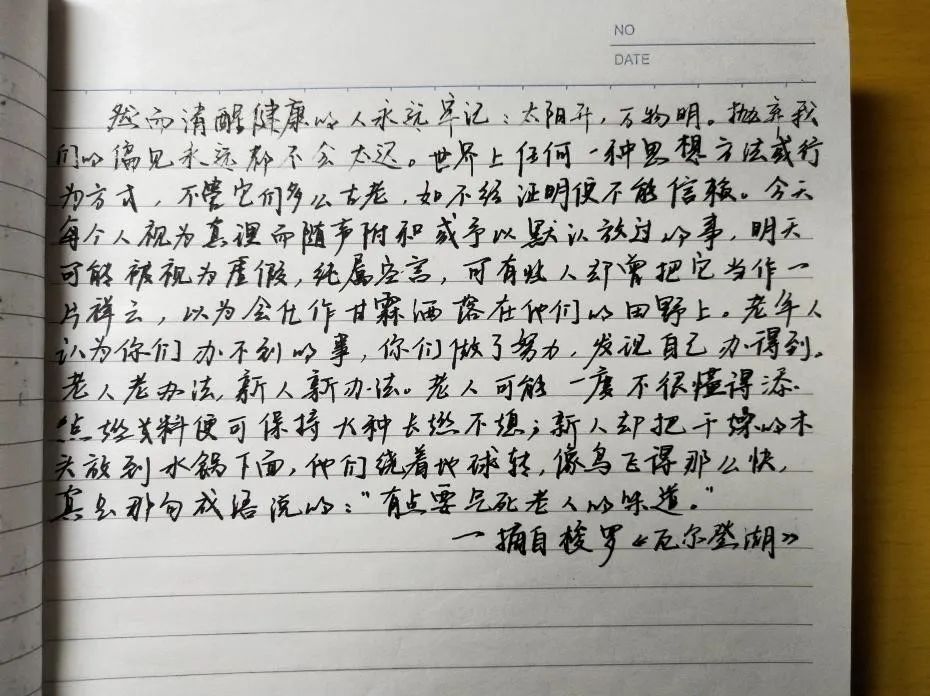 NO
DATE
然而清醒健康的人永远牢记：太阳升，万物明。抛弃我
们的偏见永远都不会太迟。世界上任何一种思想方法或行
为方式，不管它们多么古老，如不经证明便不能信赖。今天
每个人视为真理而随声附和或予以默认放过的事，明天
可能被视为虚假，纯属空言，可有些人却曾把它当作一
片祥云，以为会化作甘霖洒落在他们的田野上。老年人
认为你们办不到的事，你们做了努力，发现自己办得到。
老人老办法，新人新办法。老人可能一度不很懂得添
点燃料便可保持火种长燃不熄；新人却把干燥的木
头放到水锅下面，他们绕着地球转，像鸟飞得那么快，
真是那句成语说的：“有点要气死老人的味道。”
一摘自梭罗《瓦尔登湖》